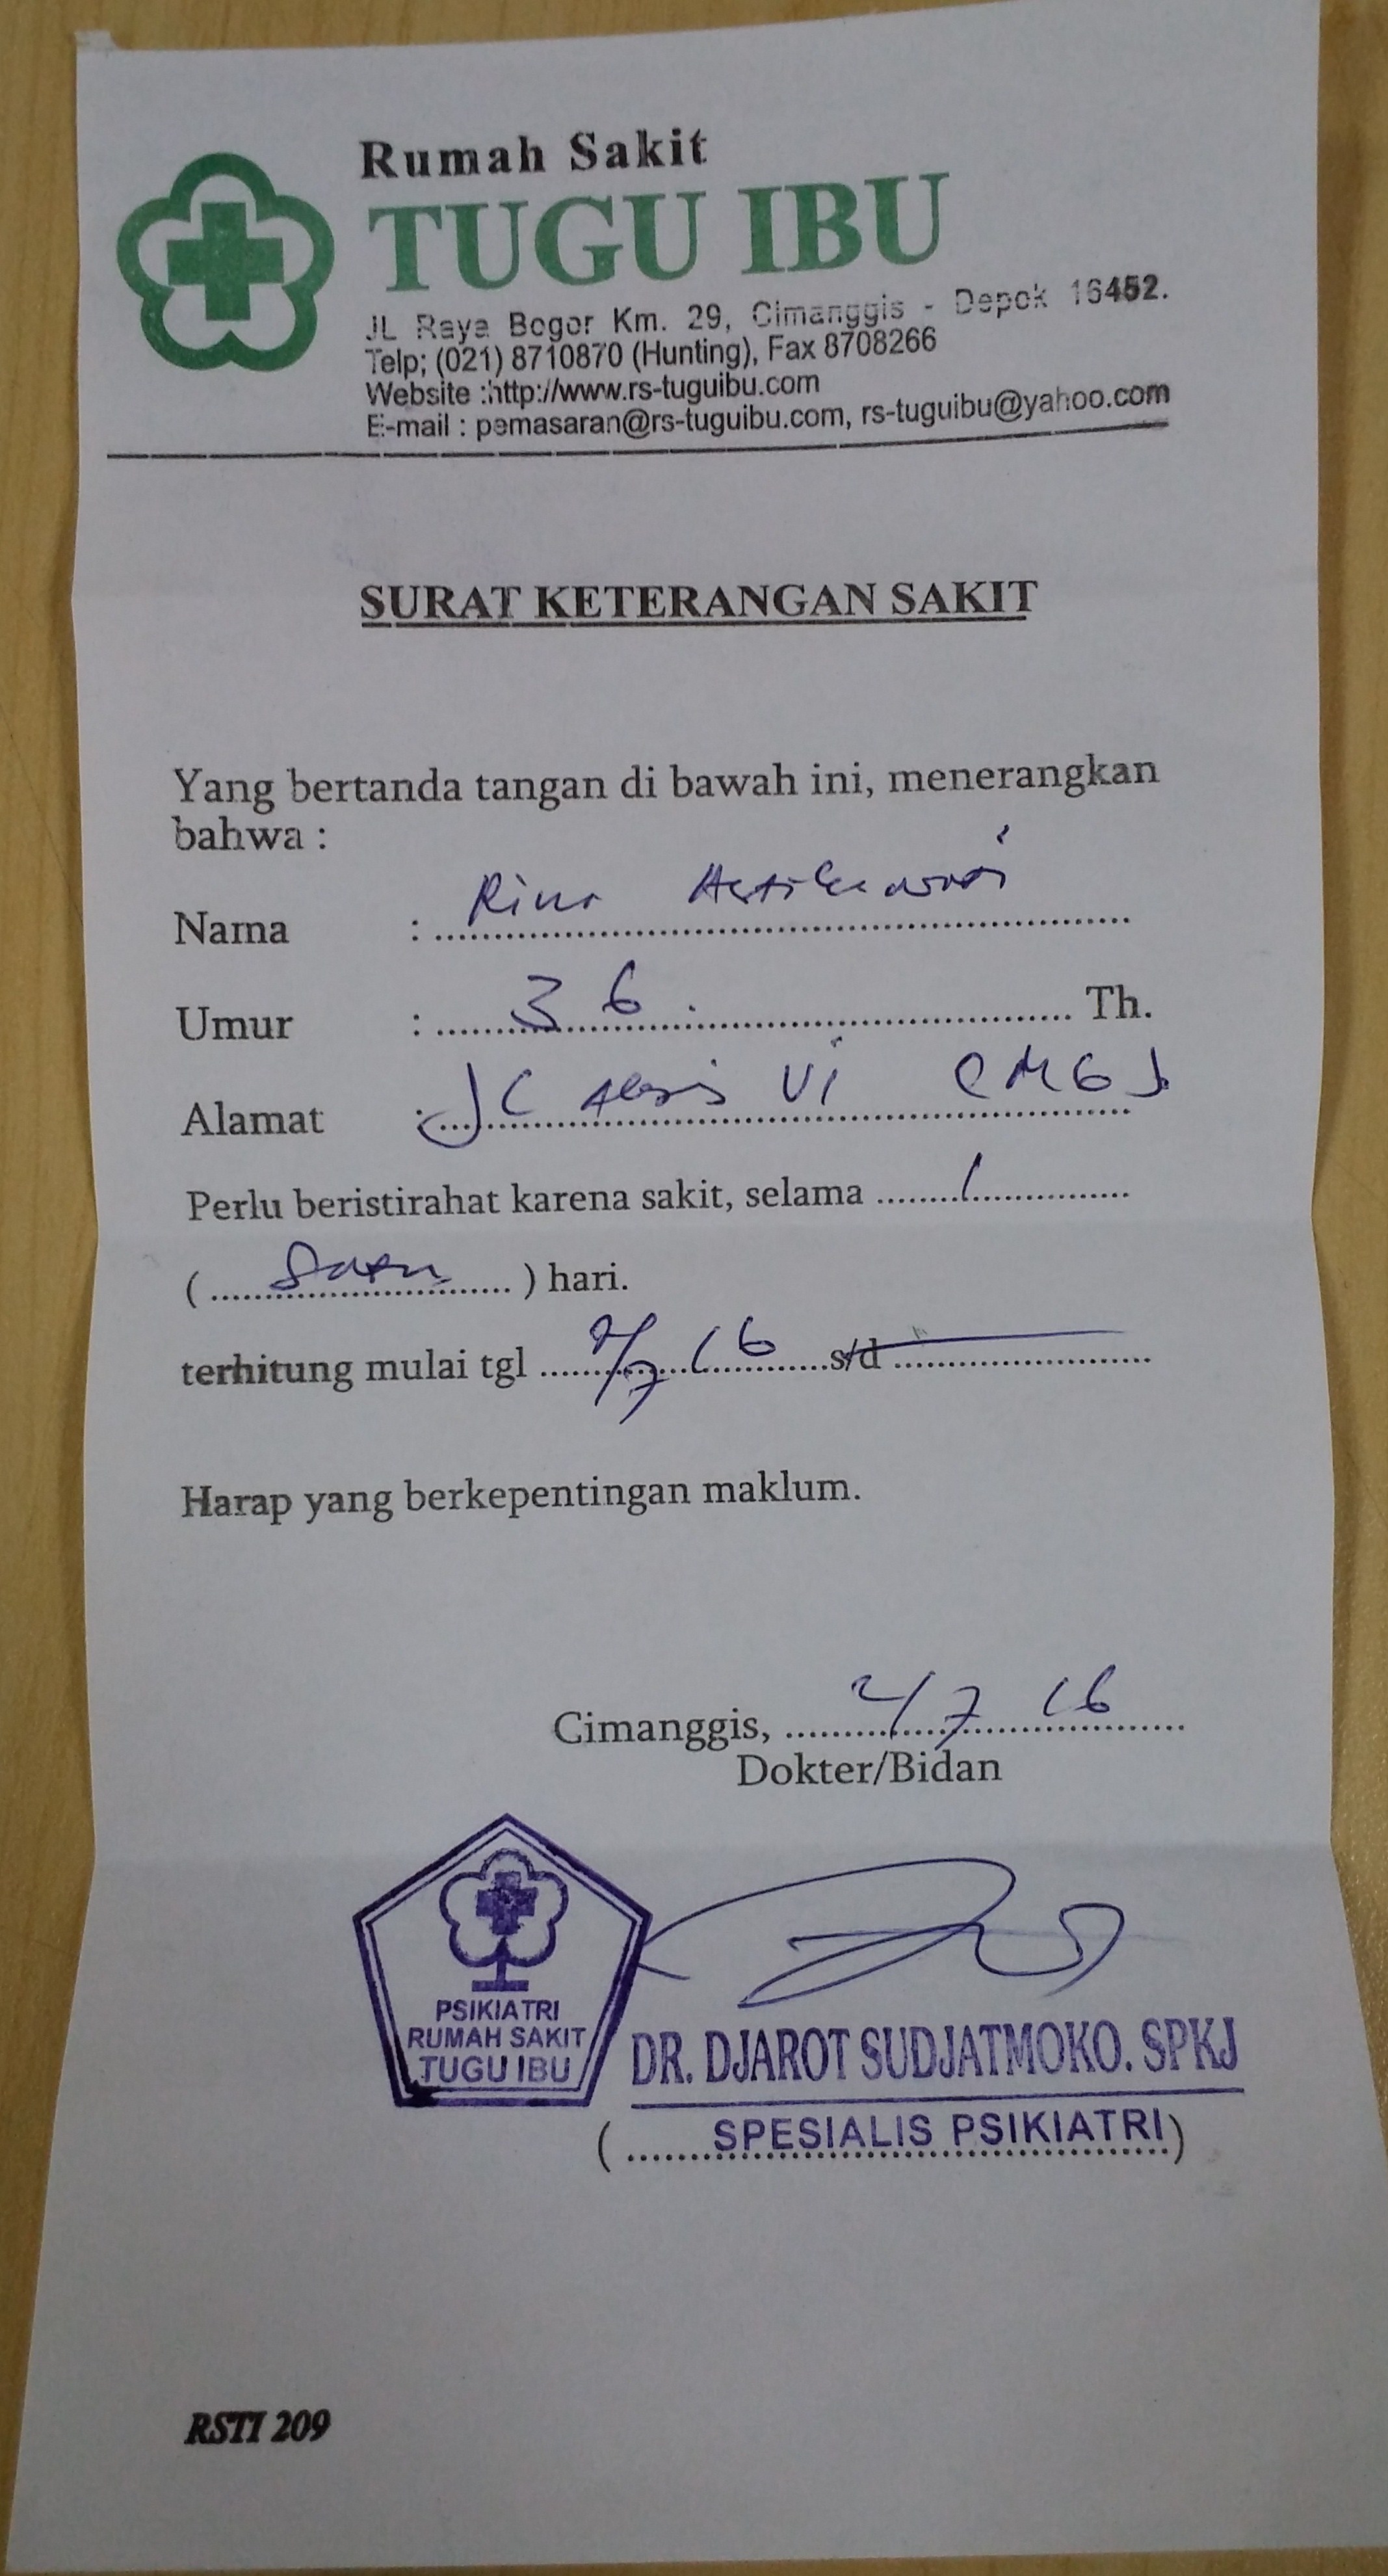 Rumah Sakit
TUGU IBU
JL Raya Bogor Km. 29, Cimanggis - Depok 16452.
Telp; (021) 8710870 (Hunting), Fax 8708266
Website :http://www.rs-tuguibu.com
E-mail : pemasaran@rs-tuguibu.com, rs-tuguibu@yahoo.com
SURAT KETERANGAN SAKIT
Yang bertanda tangan di bawah ini, menerangkan
bahwa :
Nama : Rina
Umur : 36 Th.
Alamat : VI
Perlu beristirahat karena sakit, selama 1
( Satu ) hari.
terhitung mulai tgl 2/7 16 s/d
Harap yang berkepentingan maklum.
Cimanggis, 2/7 16
Dokter/Bidan
PSIKIATRI
RUMAH SAKIT
TUGU IBU
DR. DJAROT SUDJATMOKO. SPKJ
( SPESIALIS PSIKIATRI )
RSTI 209